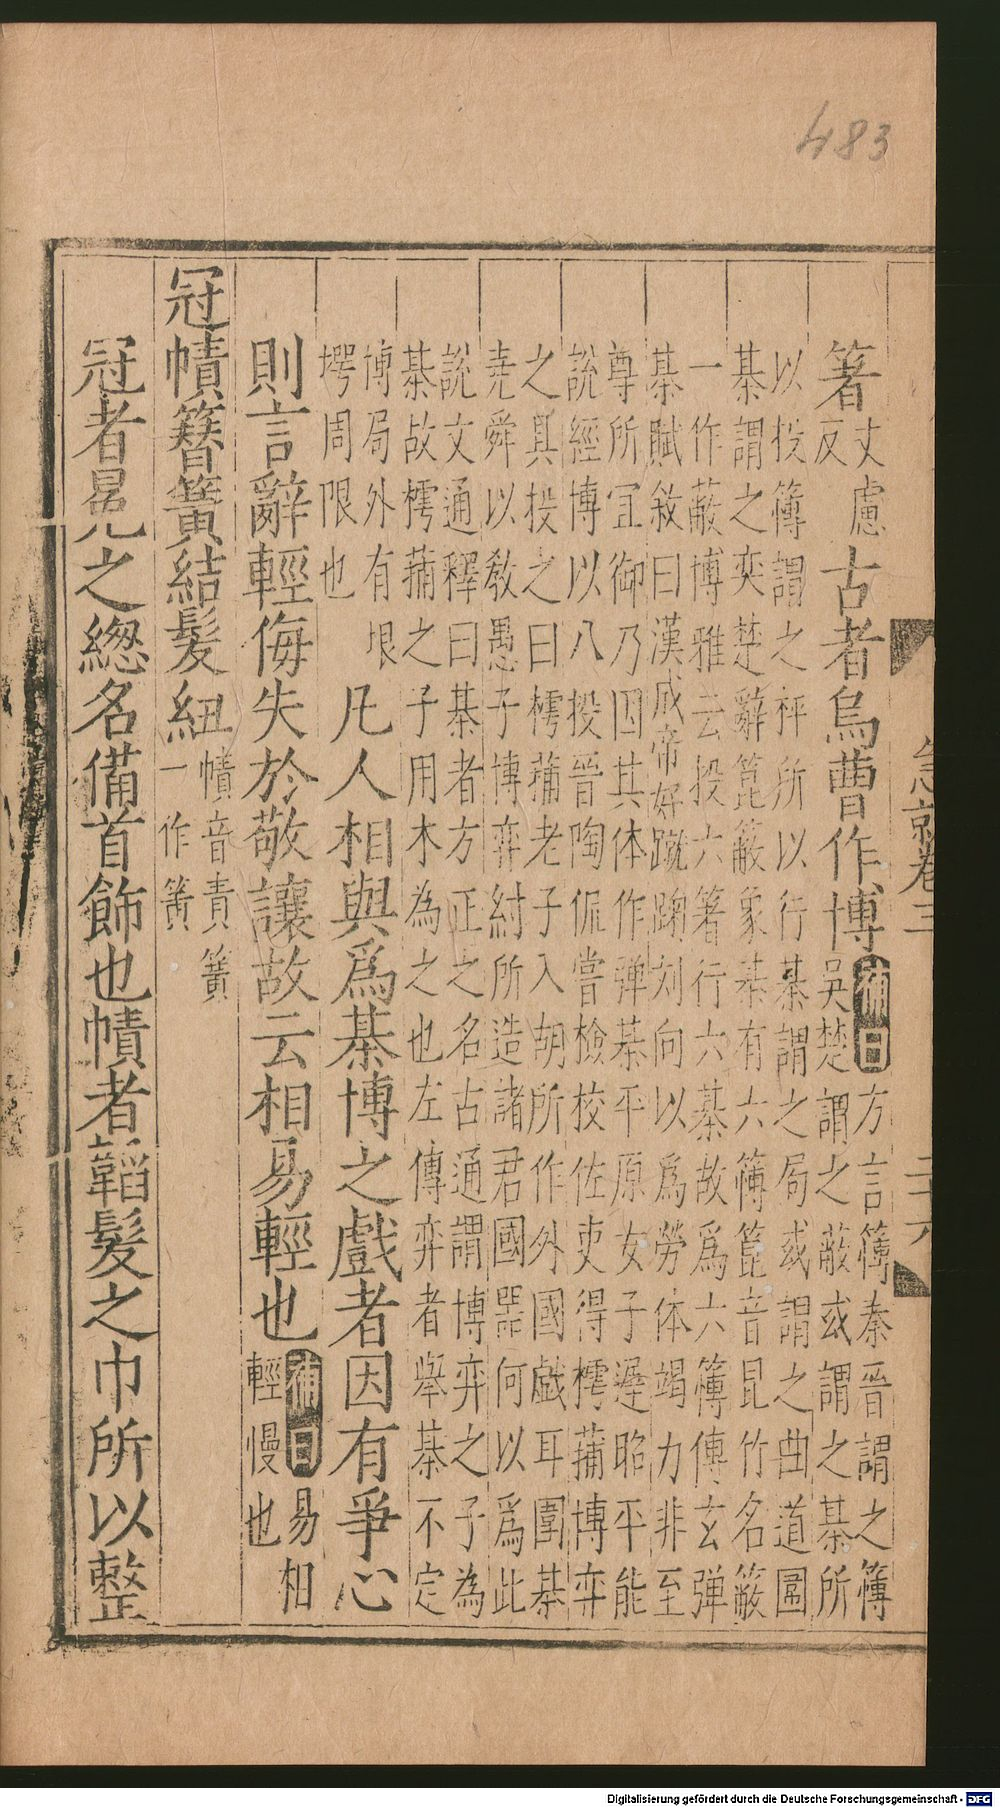 483
急就卷三
二十六
箸丈慮反古者烏曹作博補曰方言簙秦晉謂之簙吳楚謂之蔽或謂之棊所
以投簙謂之枰所以行棊謂之局或謂之曲道圍
棊謂之奕楚辭箟蔽象棊有六簙箟音昆竹名蔽
一作蔽博雅云投六箸行六棊故爲六簙傅玄弹
棊賦敘曰漢成帝好蹴踘刘向以爲勞体竭力非至
尊所宜御乃因其体作弹棊平原女子遲昭平能
說經博以八投晉陶侃嘗檢校佐吏得樗蒱博弈
之具投之曰樗蒱老子入胡所作外國戯耳圍棊
尭舜以敎愚子博弈紂所造諸君國器何以爲此
說文通釋曰棊者方正之名古通謂博弈之子為
棊故樗蒱之子用木為之也左傳弈者舉棊不定
博局外有垠
堮周限也
凡人相與爲棊博之戲者因有爭心
則言辭輕侮失於敬讓故云相易輕也補曰易相
輕慢也
冠幘簪簧結髮紐幘音責簧
一作簀
冠者冕之緫名備首飾也幘者韜髮之巾所以整
Digitalisierung gefördert durch die Deutsche Forschungsgemeinschaft - DFG